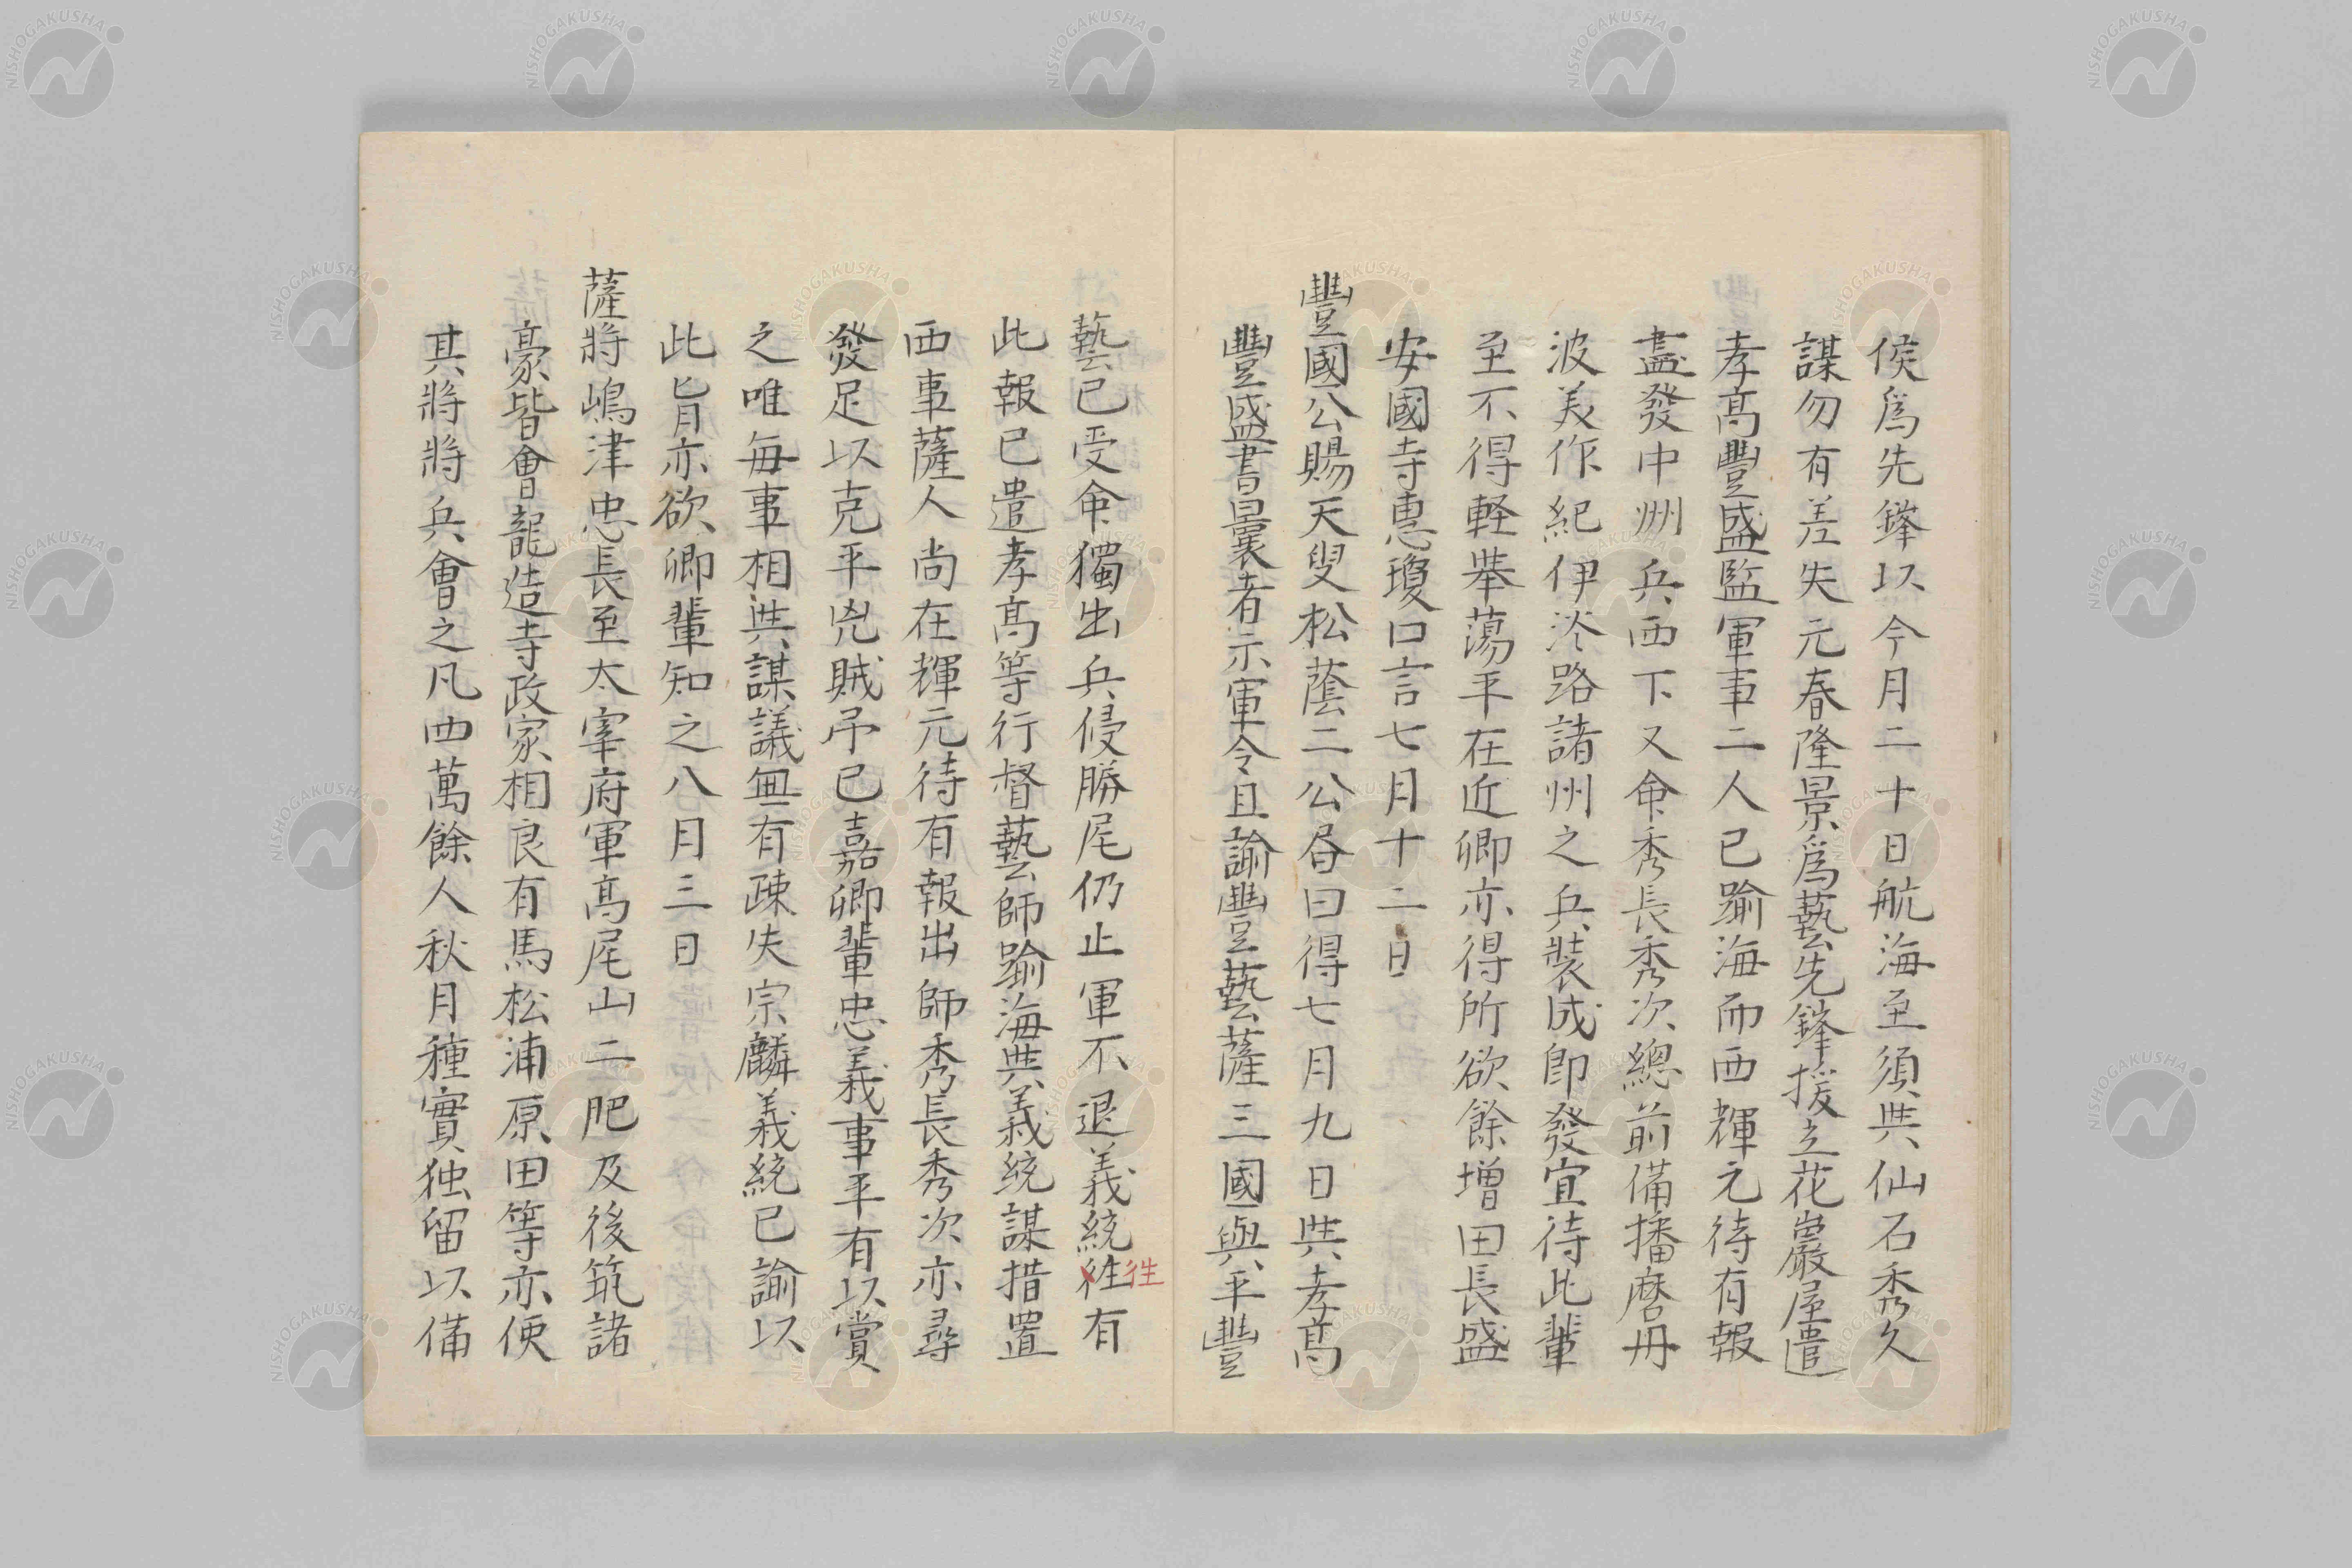 侯爲先鋒以今月二十日航海至須與仙石秀久
謀勿有差失元春隆景爲藝先鋒援立花巖屋遣
孝高豐盛監軍事二人已踰海而西輝元待有報
盡發中州兵西下又命秀長秀次總前備播磨丹
波美作紀伊淡路諸州之兵裝成即發宜待此輩
至不得軽舉蕩平在近卿亦得所欲餘增田長盛
安國寺惠瓊口言七月十二日
豐國公賜天叟松蔭二公書曰得七月九日與孝高
豐盛書曩者示軍令且諭豐藝薩三國與平豐
藝已受命獨出兵侵勝尾仍止軍不退義統往有
此報已遣孝高等行督藝師踰海與義統謀措置
西事薩人尚在輝元待有報出師秀長秀次亦尋
發足以克平兇賊予已嘉卿輩忠義事平有以賞
之唯每事相與謀議無有疎失宗麟義統已諭以
此旨亦欲卿輩知之八月三日
薩將嶋津忠長至太宰府軍高尾山二肥及後筑諸
豪皆會龍造寺政家相良有馬松浦原田等亦便
其將將兵會之凡四萬餘人秋月種實独留以備